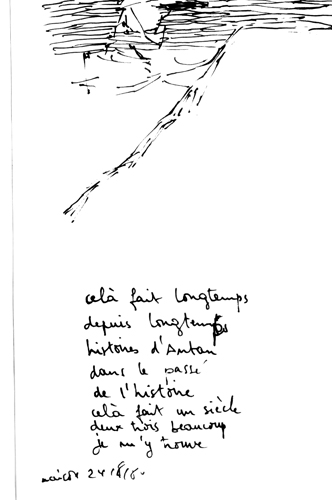 celà fait longtemps
depuis longtemps
histoires d'Antan
dans le passé
de l'histoire
celà fait un siècle
deux trois beaucoup
je m'y trouve
24